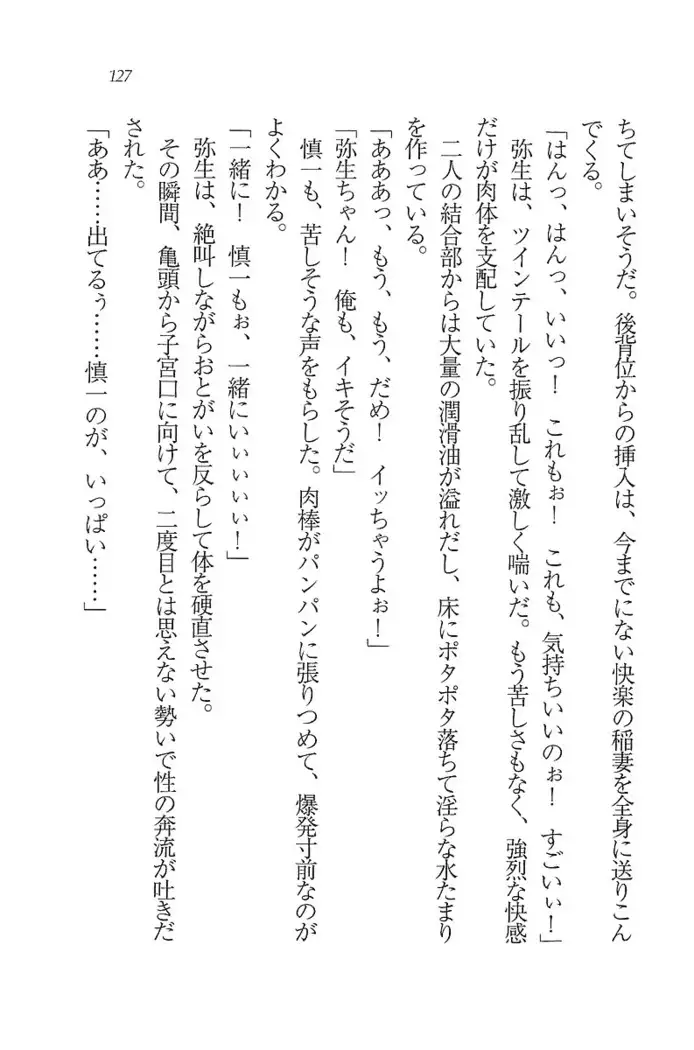 127
ちてしまいそうだ。後背位からの挿入は、今までにない快楽の稲妻を全身に送りこん
でくる。
「はんっ、はんっ、いいっ！　これもぉ！　これも、気持ちいいのぉ！　すごいぃ！」
弥生は、ツインテールを振り乱して激しく喘いだ。もう苦しさもなく、強烈な快感
だけが肉体を支配していた。
二人の結合部からは大量の潤滑油が溢れだし、床にポタポタ落ちて淫らな水たまり
を作っている。
「あああっ、もう、もう、だめ！　イッちゃうよぉ！」
「弥生ちゃん！　俺も、イキそうだ」
慎一も、苦しそうな声をもらした。肉棒がパンパンに張りつめて、爆発寸前なのが
よくわかる。
「一緒に！　慎一もぉ、一緒にいぃぃぃぃ！」
弥生は、絶叫しながらおとがいを反らして体を硬直させた。
その瞬間、亀頭から子宮口に向けて、二度目とは思えない勢いで性の奔流が吐きだ
された。
「ああ……出てるぅ……慎一のが、いっぱい……」